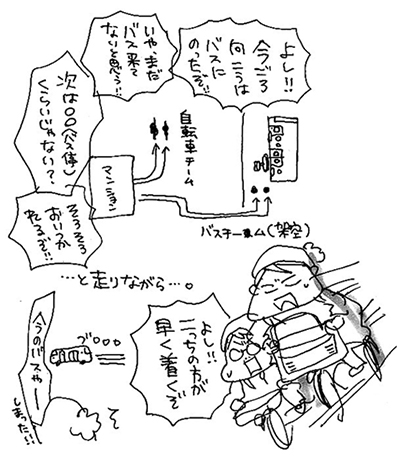 よし!!
今ごろ
向こうは
バスに
のったぞ!!
いや、まだ
バス来て
ないと思う!!
次は○○(バス停)
くらいじゃない?
そろそろ
おいつか
れるぞ!!
自転車チーム
マンション
バスチーム(架空)
…と走りながら…。
よし!!
こっちの方が
早く着くぞ
ブ〜
今のバスや〜
しまった!!
そ